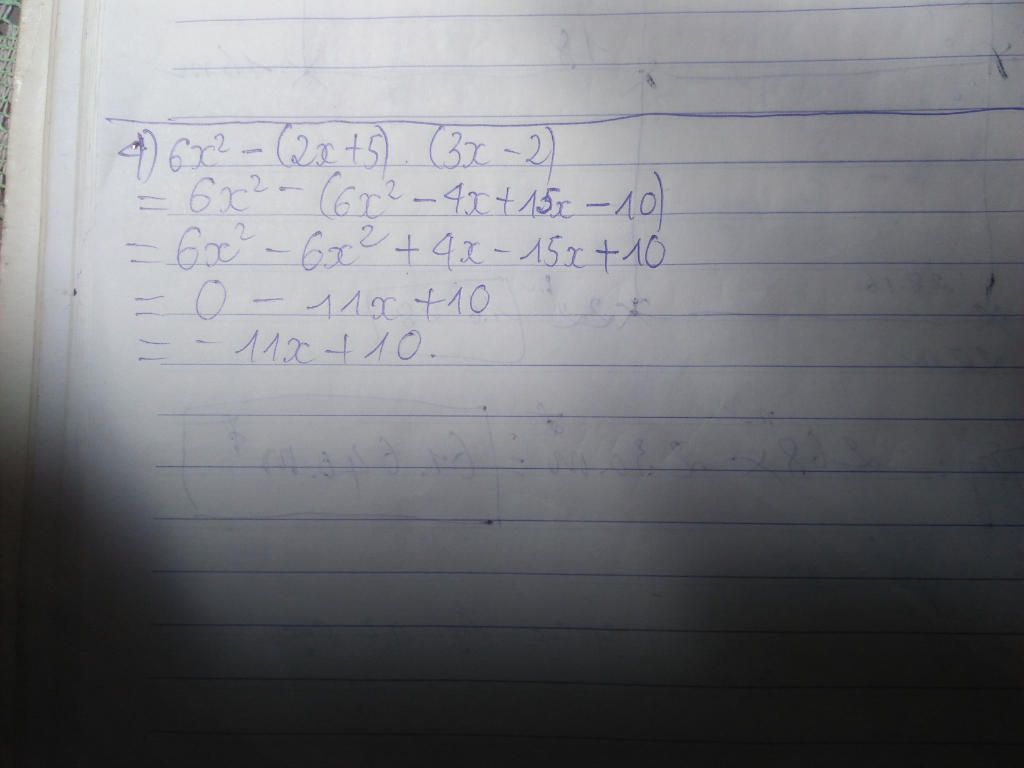 4) 6x² - (2x+5) . (3x-2)
= 6x² - (6x² - 4x + 15x - 10)
= 6x² - 6x² + 4x - 15x + 10
= 0 - 11x + 10
= - 11x + 10.